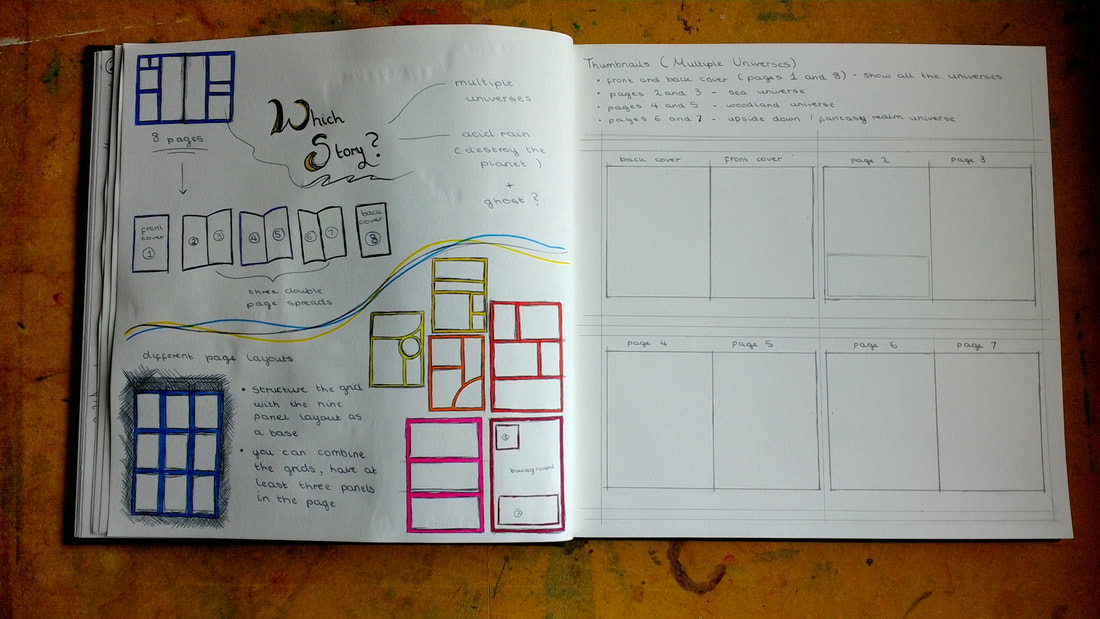 8 pages
Which
Story?
multiple
universes
acid rain
(destroy the
planet)
+
ghost?
front
cover
1
2
3
4
5
6
7
back
cover
8
three double
page spreads
different page layouts
• structure the grid
with the nine
panel layout as
a base
• you can combine
the grids, have at
least three panels
in the page
①
background
②
Thumbnails (Multiple Universes)
• front and back cover (pages 1 and 8) - show all the universes
• pages 2 and 3 - sea universe
• pages 4 and 5 - woodland universe
• pages 6 and 7 - upside down / fantasy realm universe
back cover
front cover
page 2
page 3
page 4
page 5
page 6
page 7